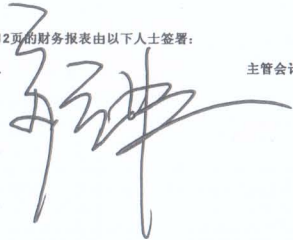 12页的财务报表由以下人士签署：
主管会计